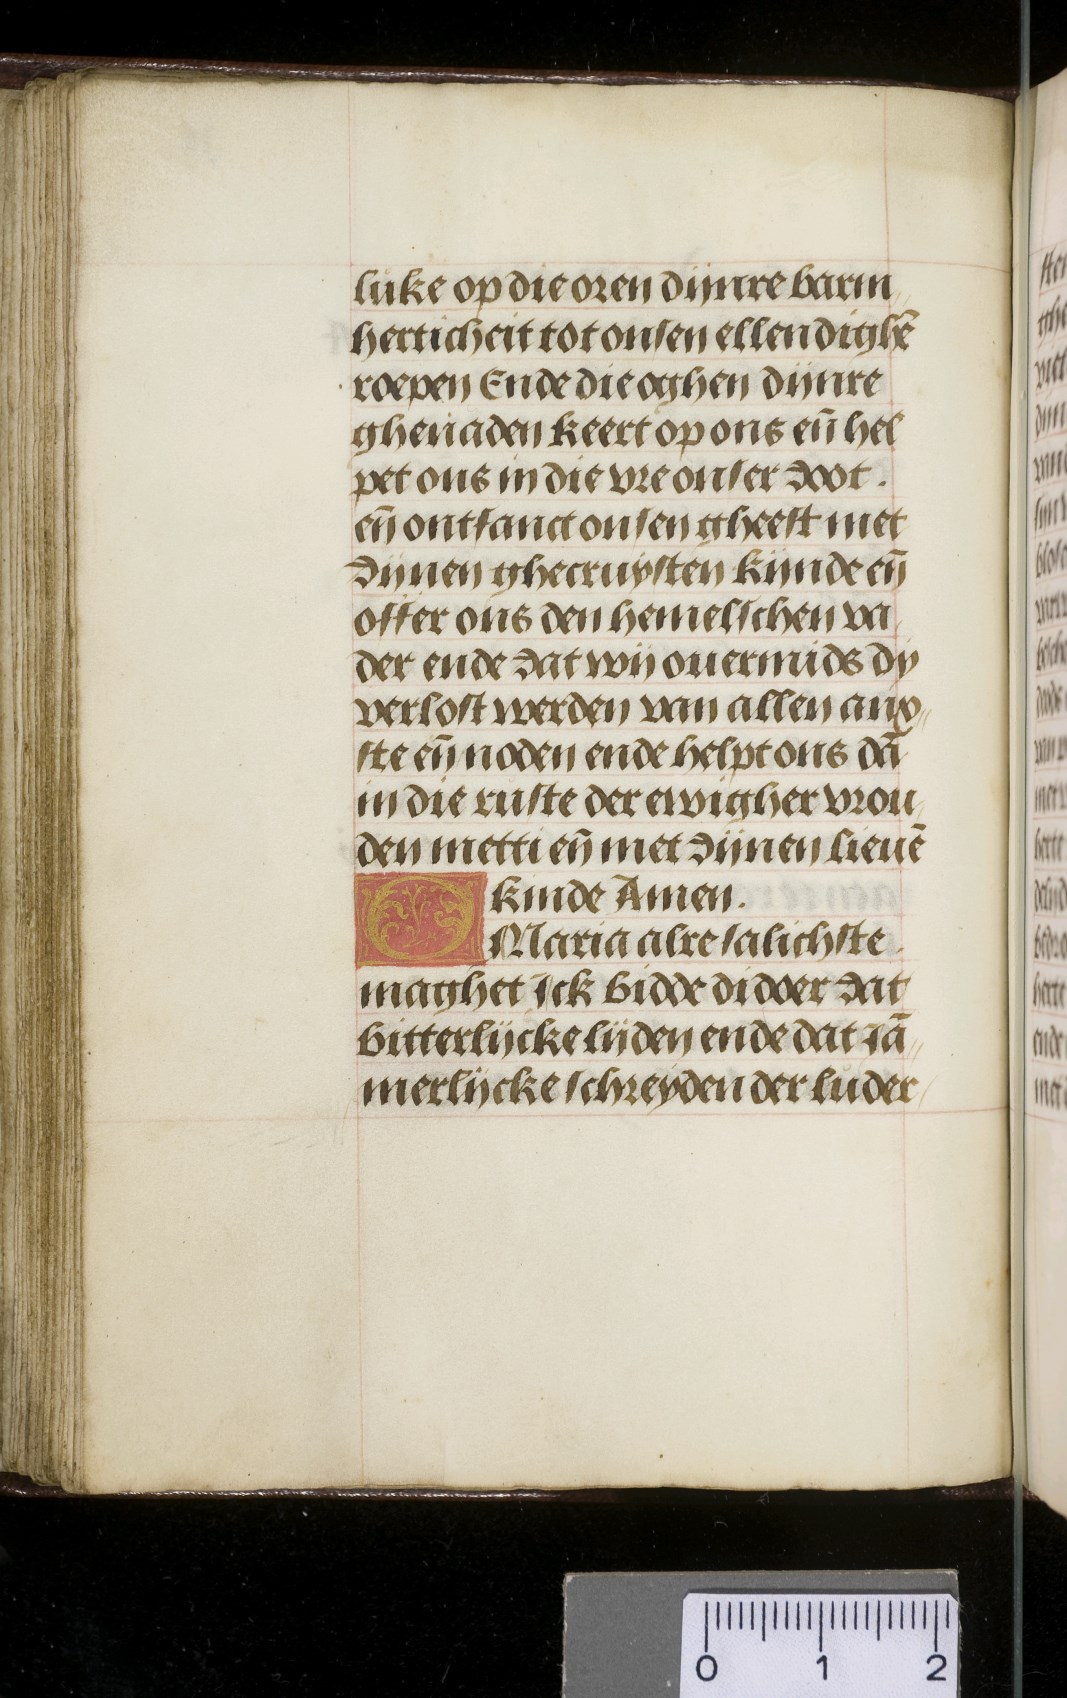 lijke op die oren dijnre barm
herticheit tot onsen ellendighē
roepen Ende die oghen dijnre
ghenaden keert op ons eñ hel
pet ons in die vre onser doot.
eñ ontfanct onsen gheest met
dijnen ghecruysten kijnde eñ
offer ons den hemelschen va
der ende dat wij ouermids dy
verlost werden van allen anx
ste eñ noden ende helpt ons dā
in die ruste der ewigher vrou
den metti eñ met dijnen lieuē
kinde Amen.
O Maria alre salichste
maghet Ick bidde di doer dat
bitterlijcke lijden ende dat Jā
merlijcke schreyden der luder
0 1 2